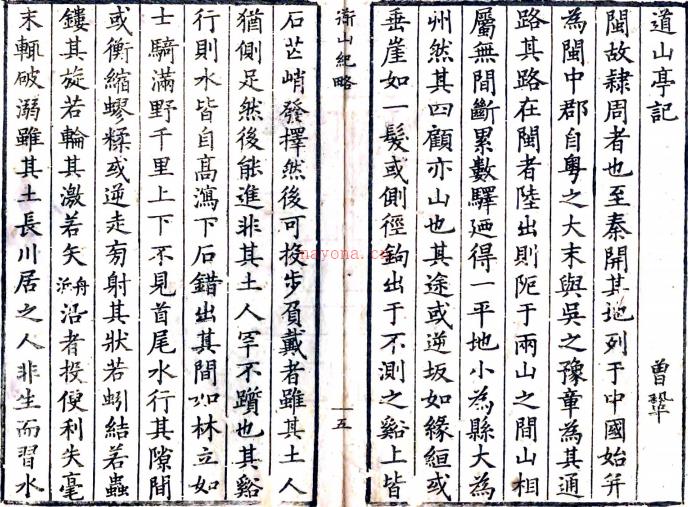 道山亭記　曾鞏
閩故隷周者也至秦開其地列于中國始并
為閩中郡自粤之大末與吳之豫章為其通
路其路在閩者陸出則阨于兩山之間山相
屬無間斷累數驛廼得一平地小為縣大為
州然其四顧亦山也其途或逆坂如緣絙或
垂崖如一髮或側徑鉤出于不測之谿上皆
衜山紀略　一五
石芒峭發擇然後可投步負戴者雖其土人
猶側足然後能進非其土人罕不躓也其谿
行則水皆自高瀉下石錯出其間如林立如
士騎滿野千里上下不見首尾水行其隙間
或衡縮蟉糅或逆走旁射其狀若蚓結若蟲
鏤其旋若輪其激若矢舟泝沿者投便利失毫
末輒破溺雖其土長川居之人非生而習水
nayona.cn